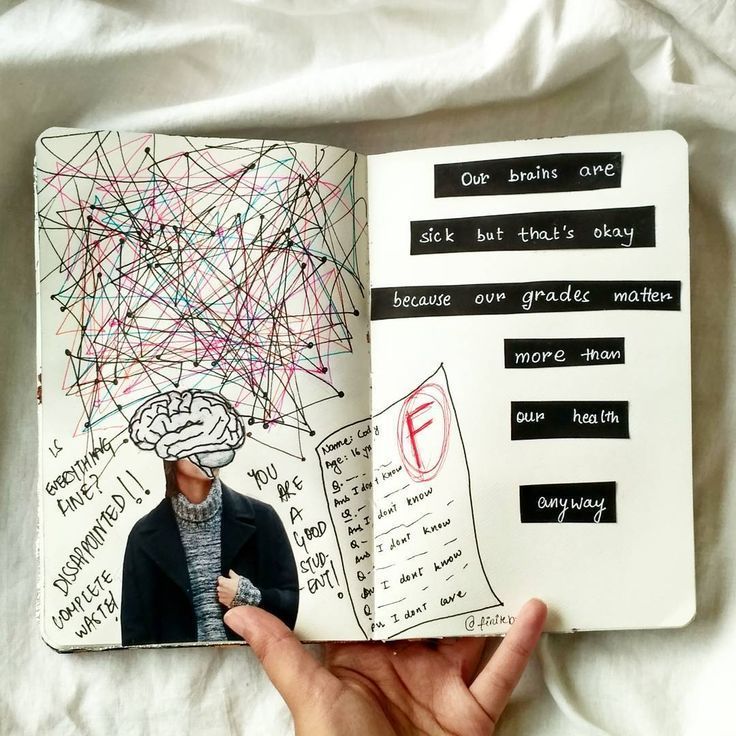 IS
EVERYTHING
FINE?
DISSAPOINTED!!
COMPLETE
WASTE!
YOU
ARE
A
GOOD
STUD-
ENT!
Name: Cody
Age: 16 yrs
Q-
Ans I don't know
Q-
Ans I don't know
Q-
Ans I don't know
Q-
Ans I don't know
Q-
Ans I dont care
F
Our brains are
sick but that's okay
because our grades matter
more than
our health
anyway